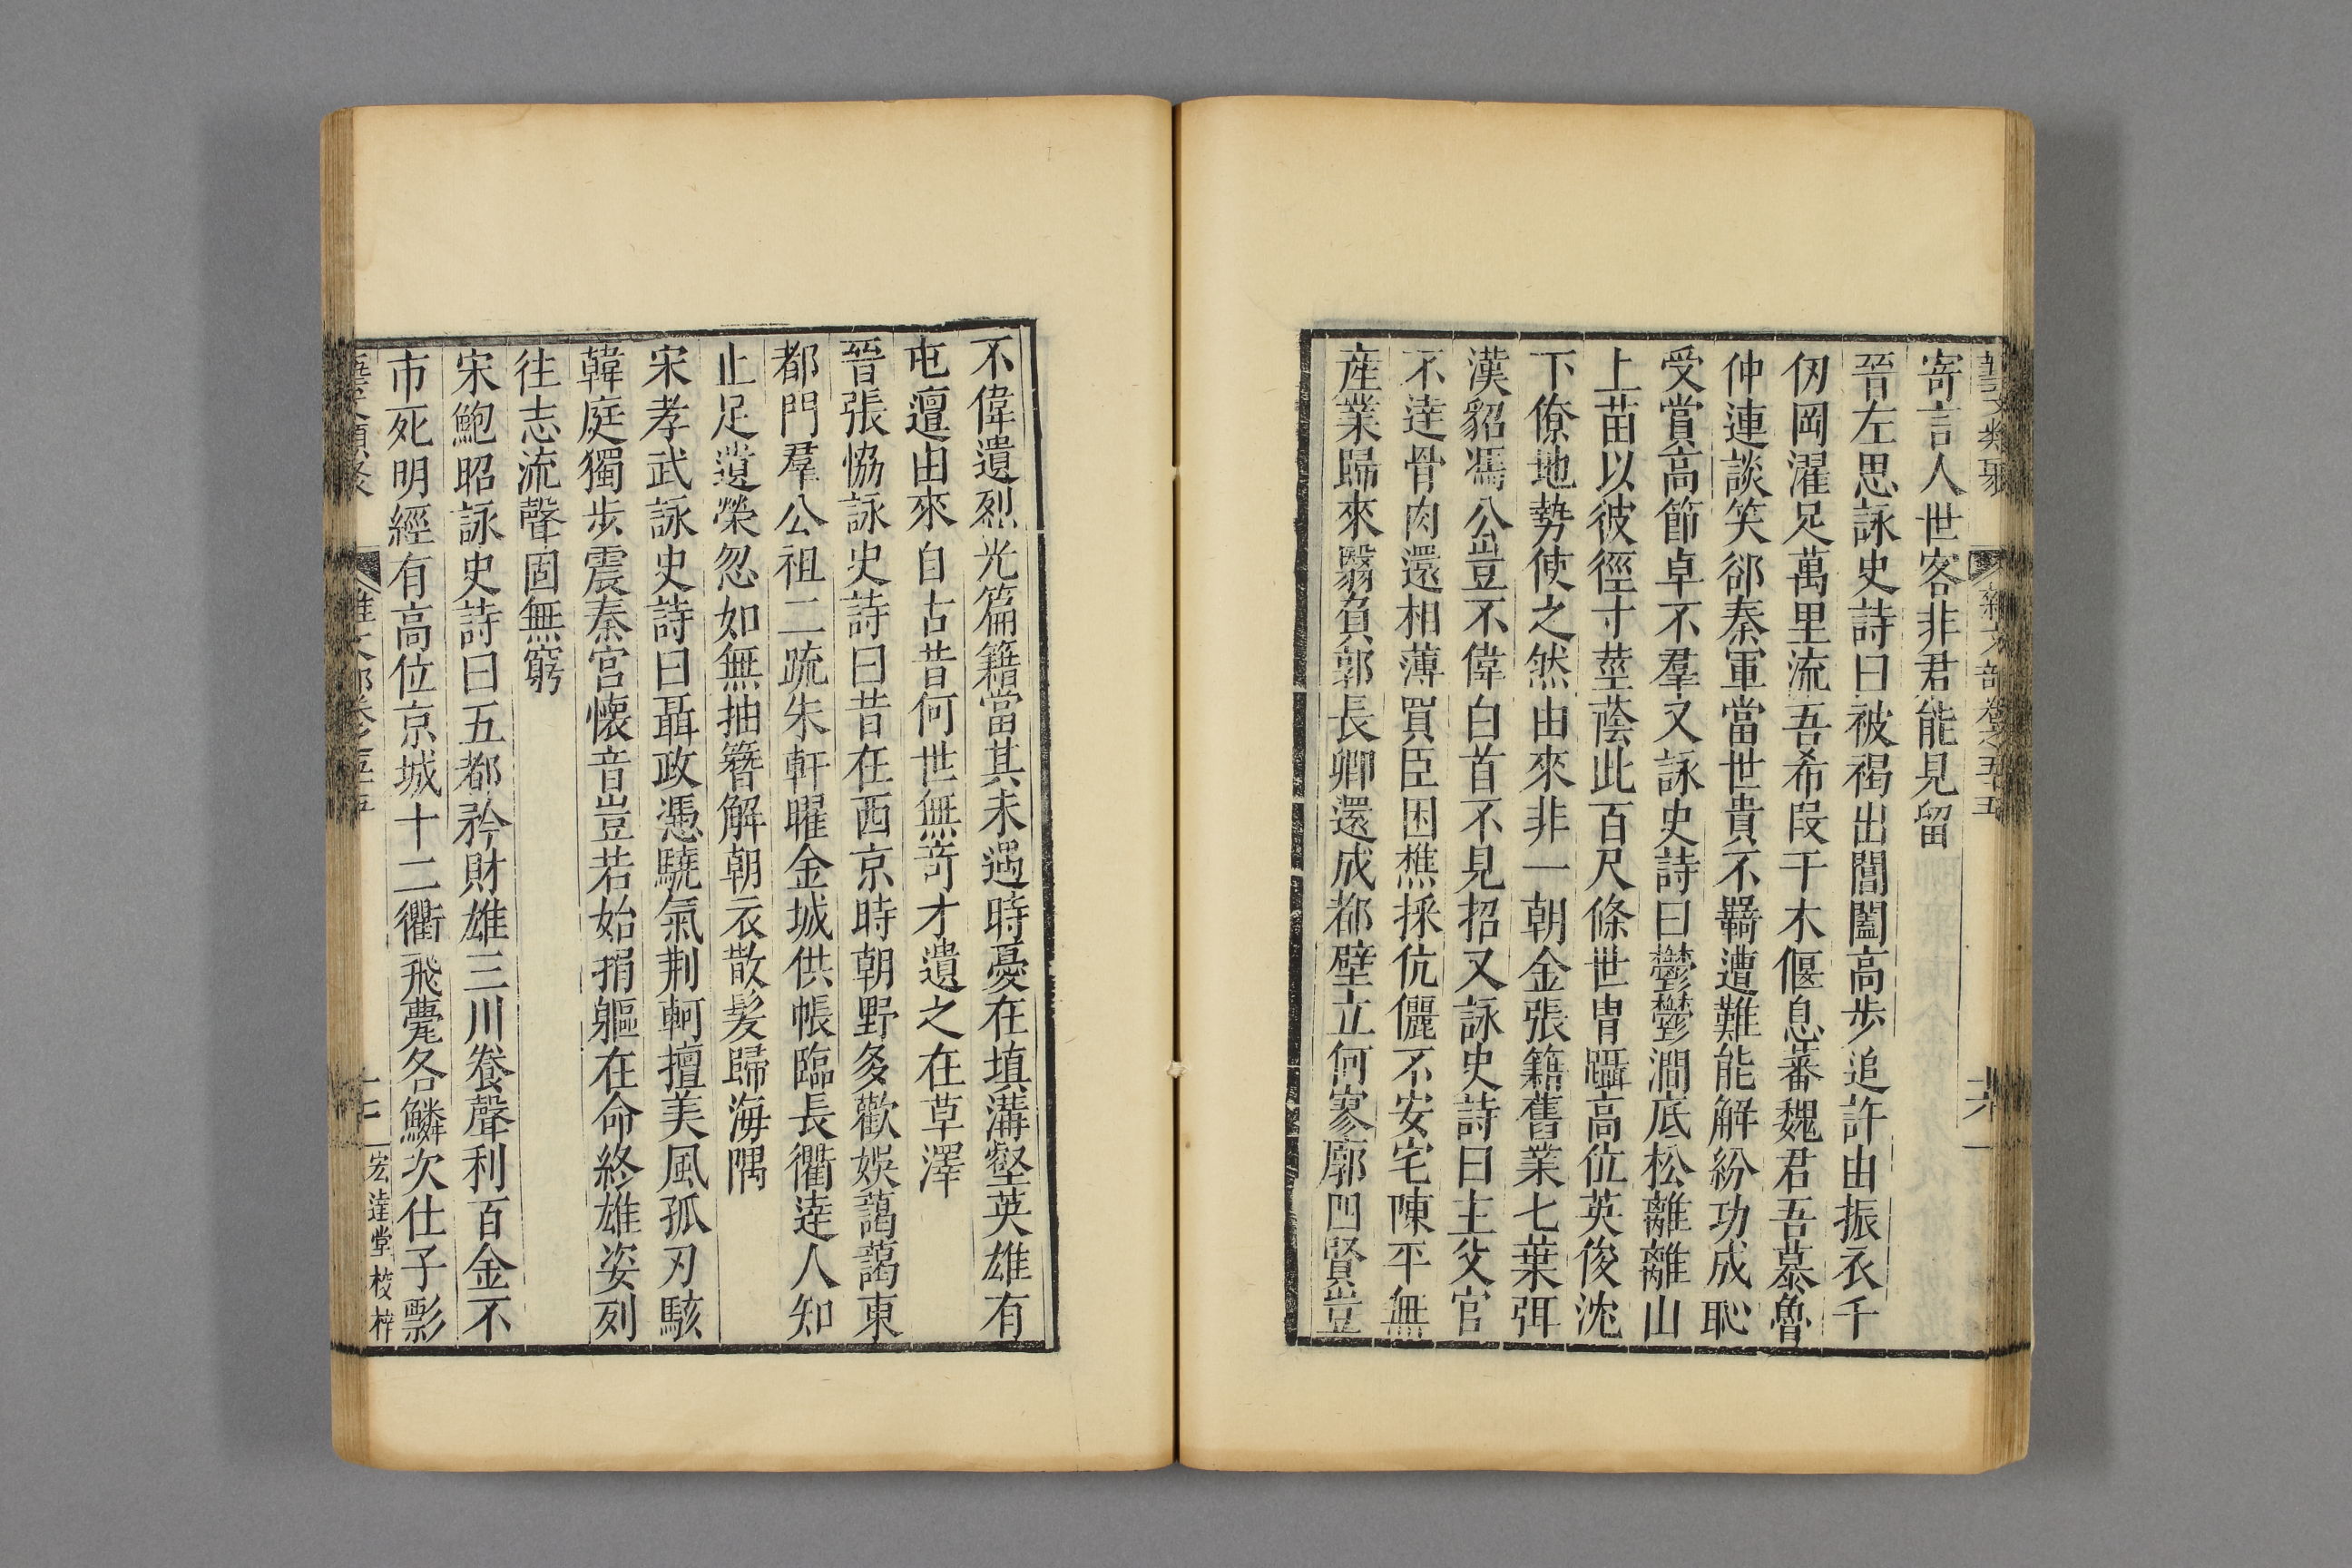 藝文類聚
雜文部卷之五十五
寄言人世客非君能見留
晉左思詠史詩曰被褐出閶闔高步追許由振衣千
仞岡濯足萬里流吾希段干木偃息蕃魏君吾慕魯
仲連談笑郤秦軍當世貴不羈遭難能解紛功成恥
受賞高節卓不羣又詠史詩曰鬱鬱澗底松離離山
上苗以彼徑寸莖蔭此百尺條世胄躡高位英俊沈
下僚地勢使之然由來非一朝金張籍舊業七葉弭
漢貂馮公豈不偉白首不見招又詠史詩曰主父官
不達骨肉還相薄買臣困樵採伉儷不安宅陳平無
產業歸來翳負郭長卿還成都壁立何寥廓四賢豈
不偉遺烈光篇籍當其未遇時憂在填溝壑英雄有
屯邅由來自古昔何世無竒才遺之在草澤
晉張恊詠史詩曰昔在西京時朝野多歡娛藹藹東
都門羣公祖二疏朱軒曜金城供帳臨長衢達人知
止足遺榮忽如無抽簪解朝衣散髮歸海隅
宋孝武詠史詩曰聶政憑驍氣荆軻擅美風孤刃駭
韓庭獨步震秦宮懷音豈若始捐軀在命終雄姿列
往志流聲固無窮
宋鮑昭詠史詩曰五都矜財雄三川養聲利百金不
市死明經有高位京城十二衢飛甍各鱗次仕子彯
藝文類聚
雜文部卷之五十五
宏達堂校梓